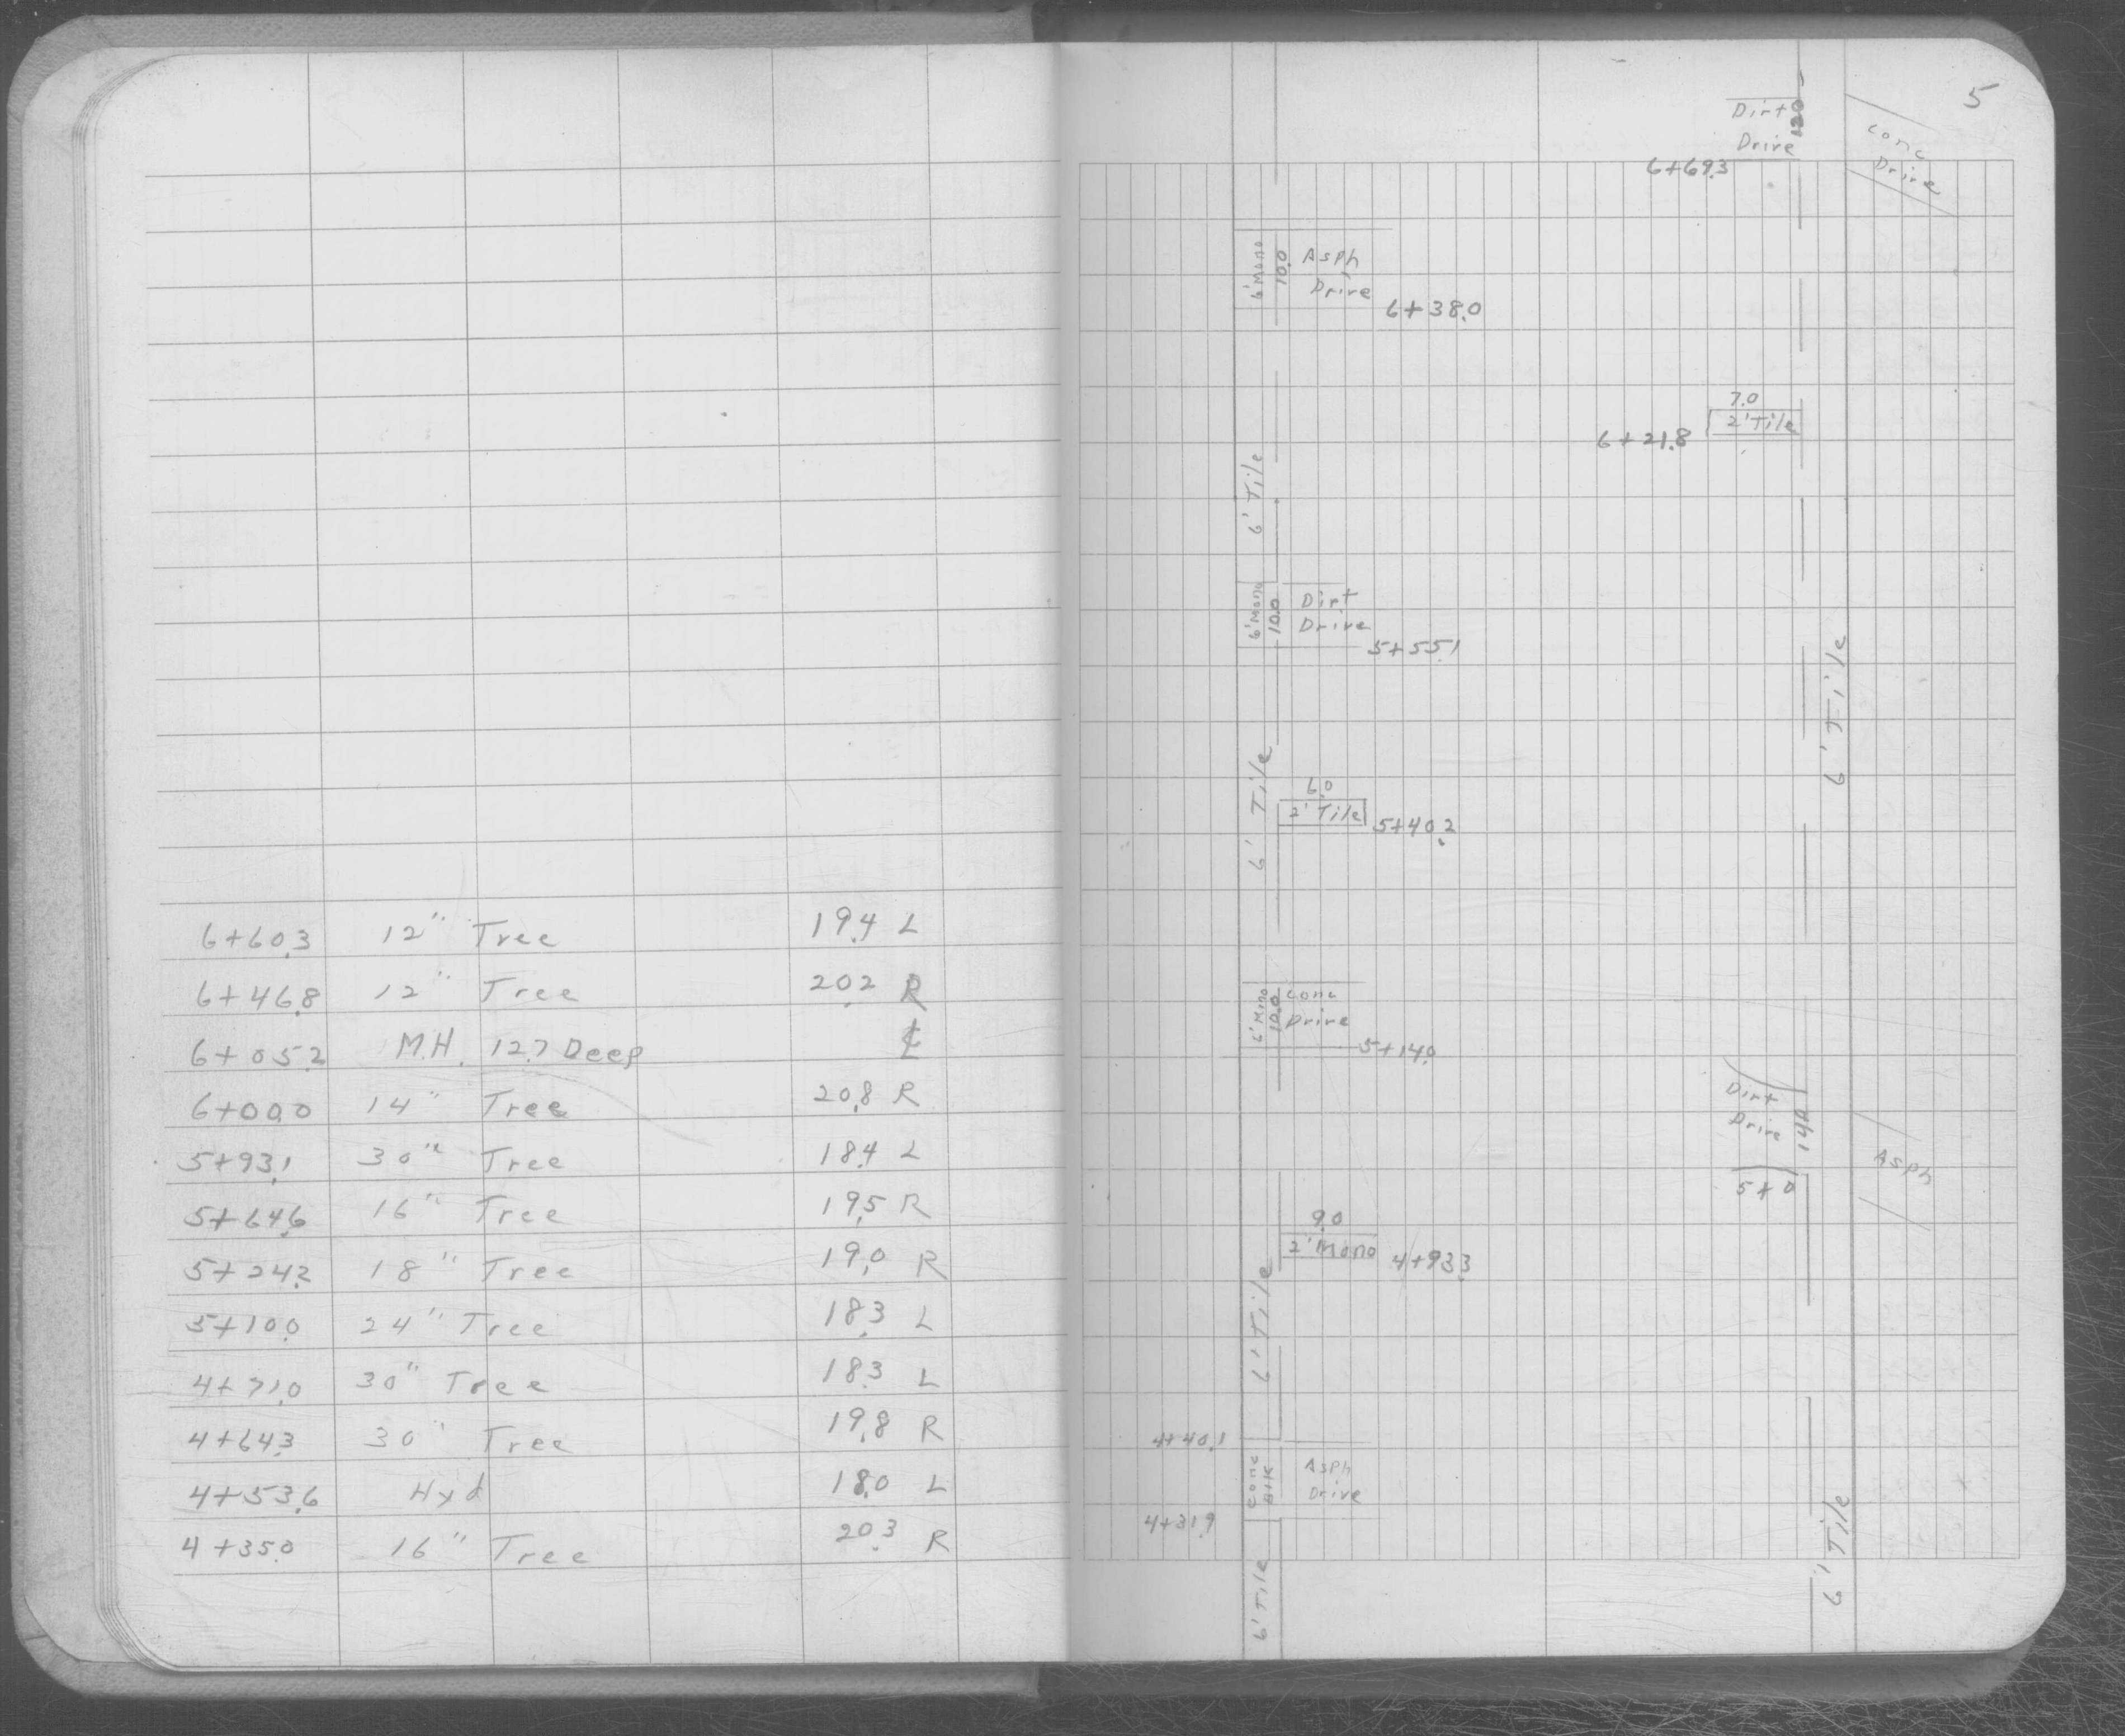 6+60.3 12" Tree 19.4 L
6+46.8 12" Tree 20.2 R
6+05.2 M.H. 12.7 Deep ℄
6+00.0 14" Tree 20.8 R
5+93.1 30" Tree 18.4 L
5+64.6 16" Tree 19.5 R
5+24.2 18" Tree 19.0 R
5+10.0 24" Tree 18.3 L
4+71.0 30" Tree 18.3 L
4+64.3 30" Tree 19.8 R
4+53.6 Hyd 18.0 L
4+35.0 16" Tree 20.3 R
5
Dirt
Drive
12.0
Conc
Drive
6+69.3
6' Mono
10.0
Asph
Drive
6+38.0
7.0
2' Tile
6+21.8
6' Tile
6' Mono
10.0
Dirt
Drive
5+55.1
6' Tile
6' Tile
6.0
2' Tile
5+40.2
6' Mono
10.0
Conc
Drive
5+14.0
Dirt
Drive
14.0
5+0
Asph
9.0
2' Mono
4+93.3
6' Tile
4+40.1
Conc
Blk
Asph
Drive
4+31.9
6' Tile
6' Tile